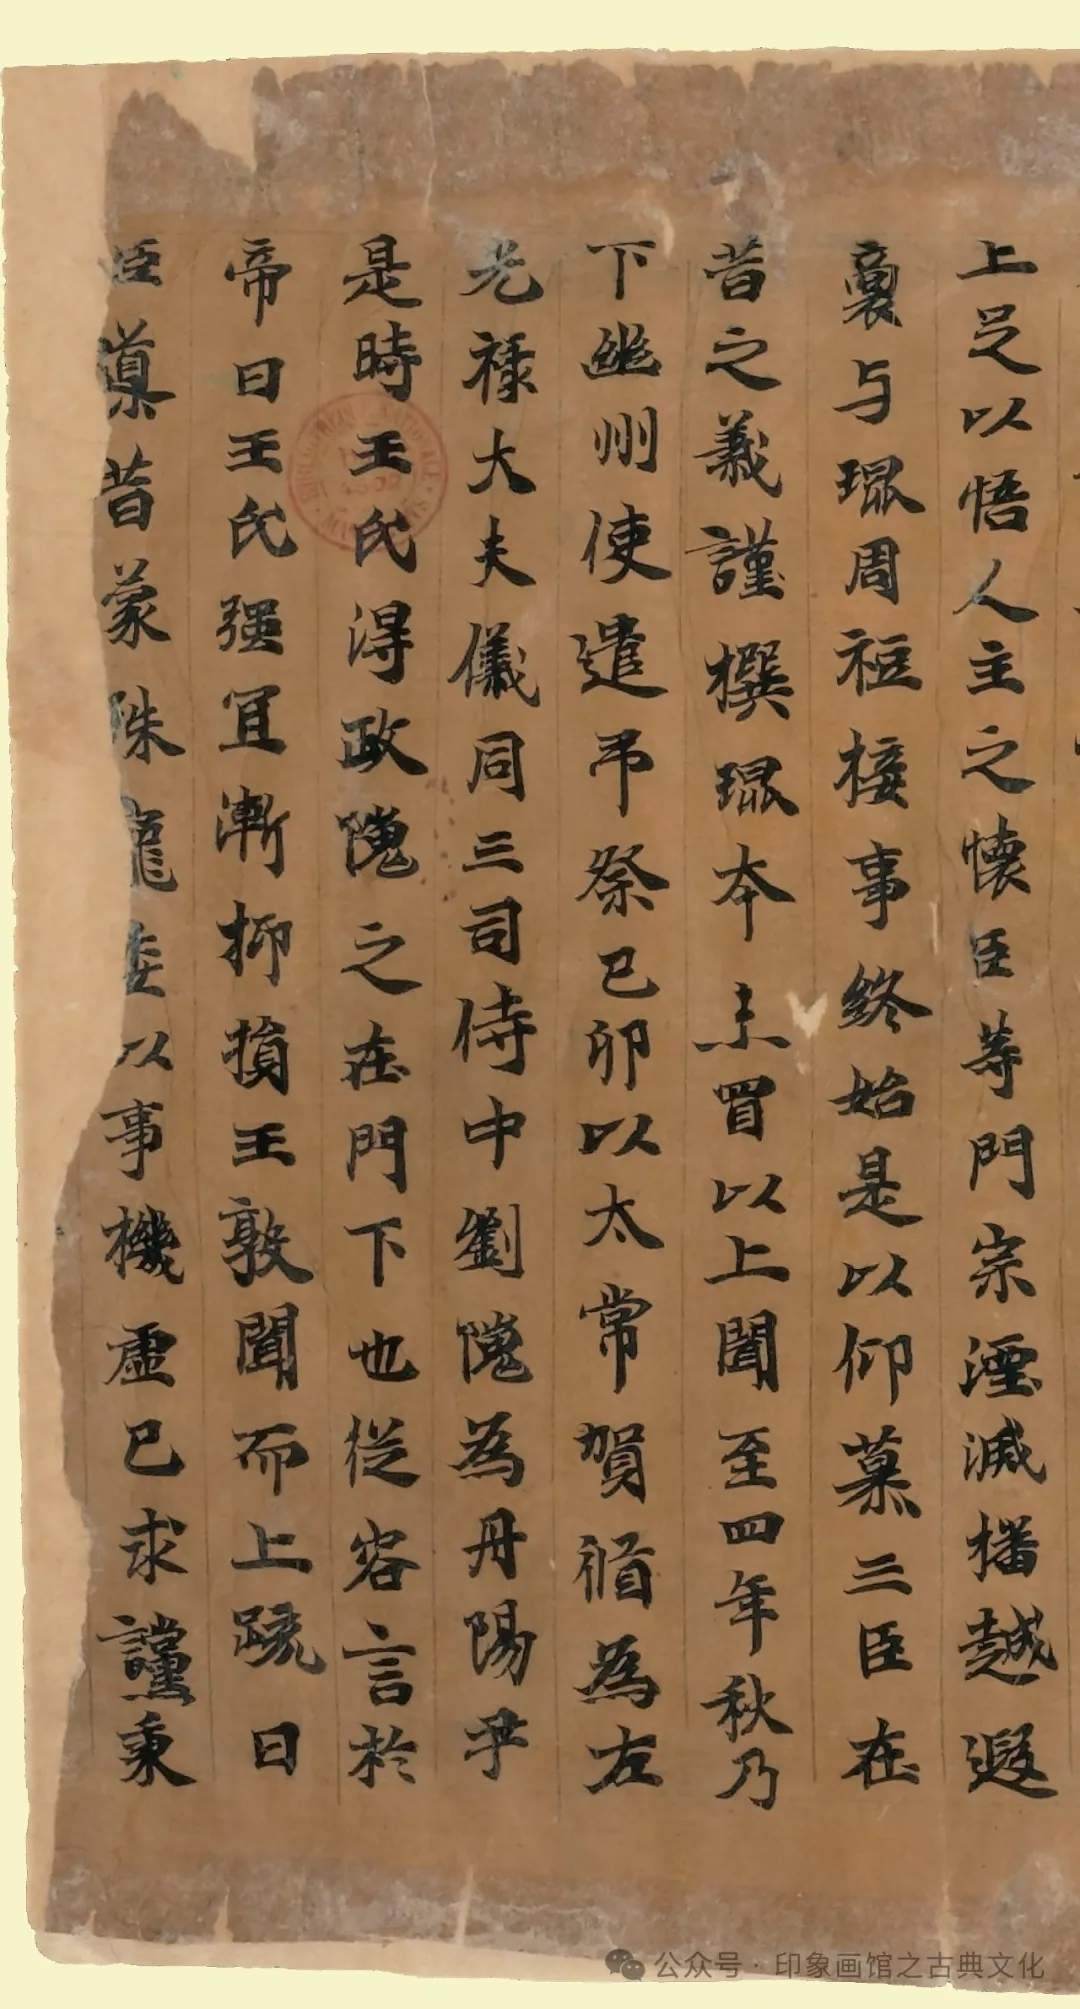 上足以悟人主之懷臣等門宗湮滅播越遐
裔与琨周旋接事終始是以仰慕三臣在
昔之義謹撰琨本末冒以上聞至四年秋乃
下幽州使遣弔祭己卯以太常賀循為左
光祿大夫儀同三司侍中劉隗為丹陽尹
是時王氏得政隗之在門下也從容言於
帝曰王氏强宜漸抑損王敦聞而上疏曰
臣導昔蒙殊寵委以事機虛己求讜秉
公众号·印象画馆之古典文化